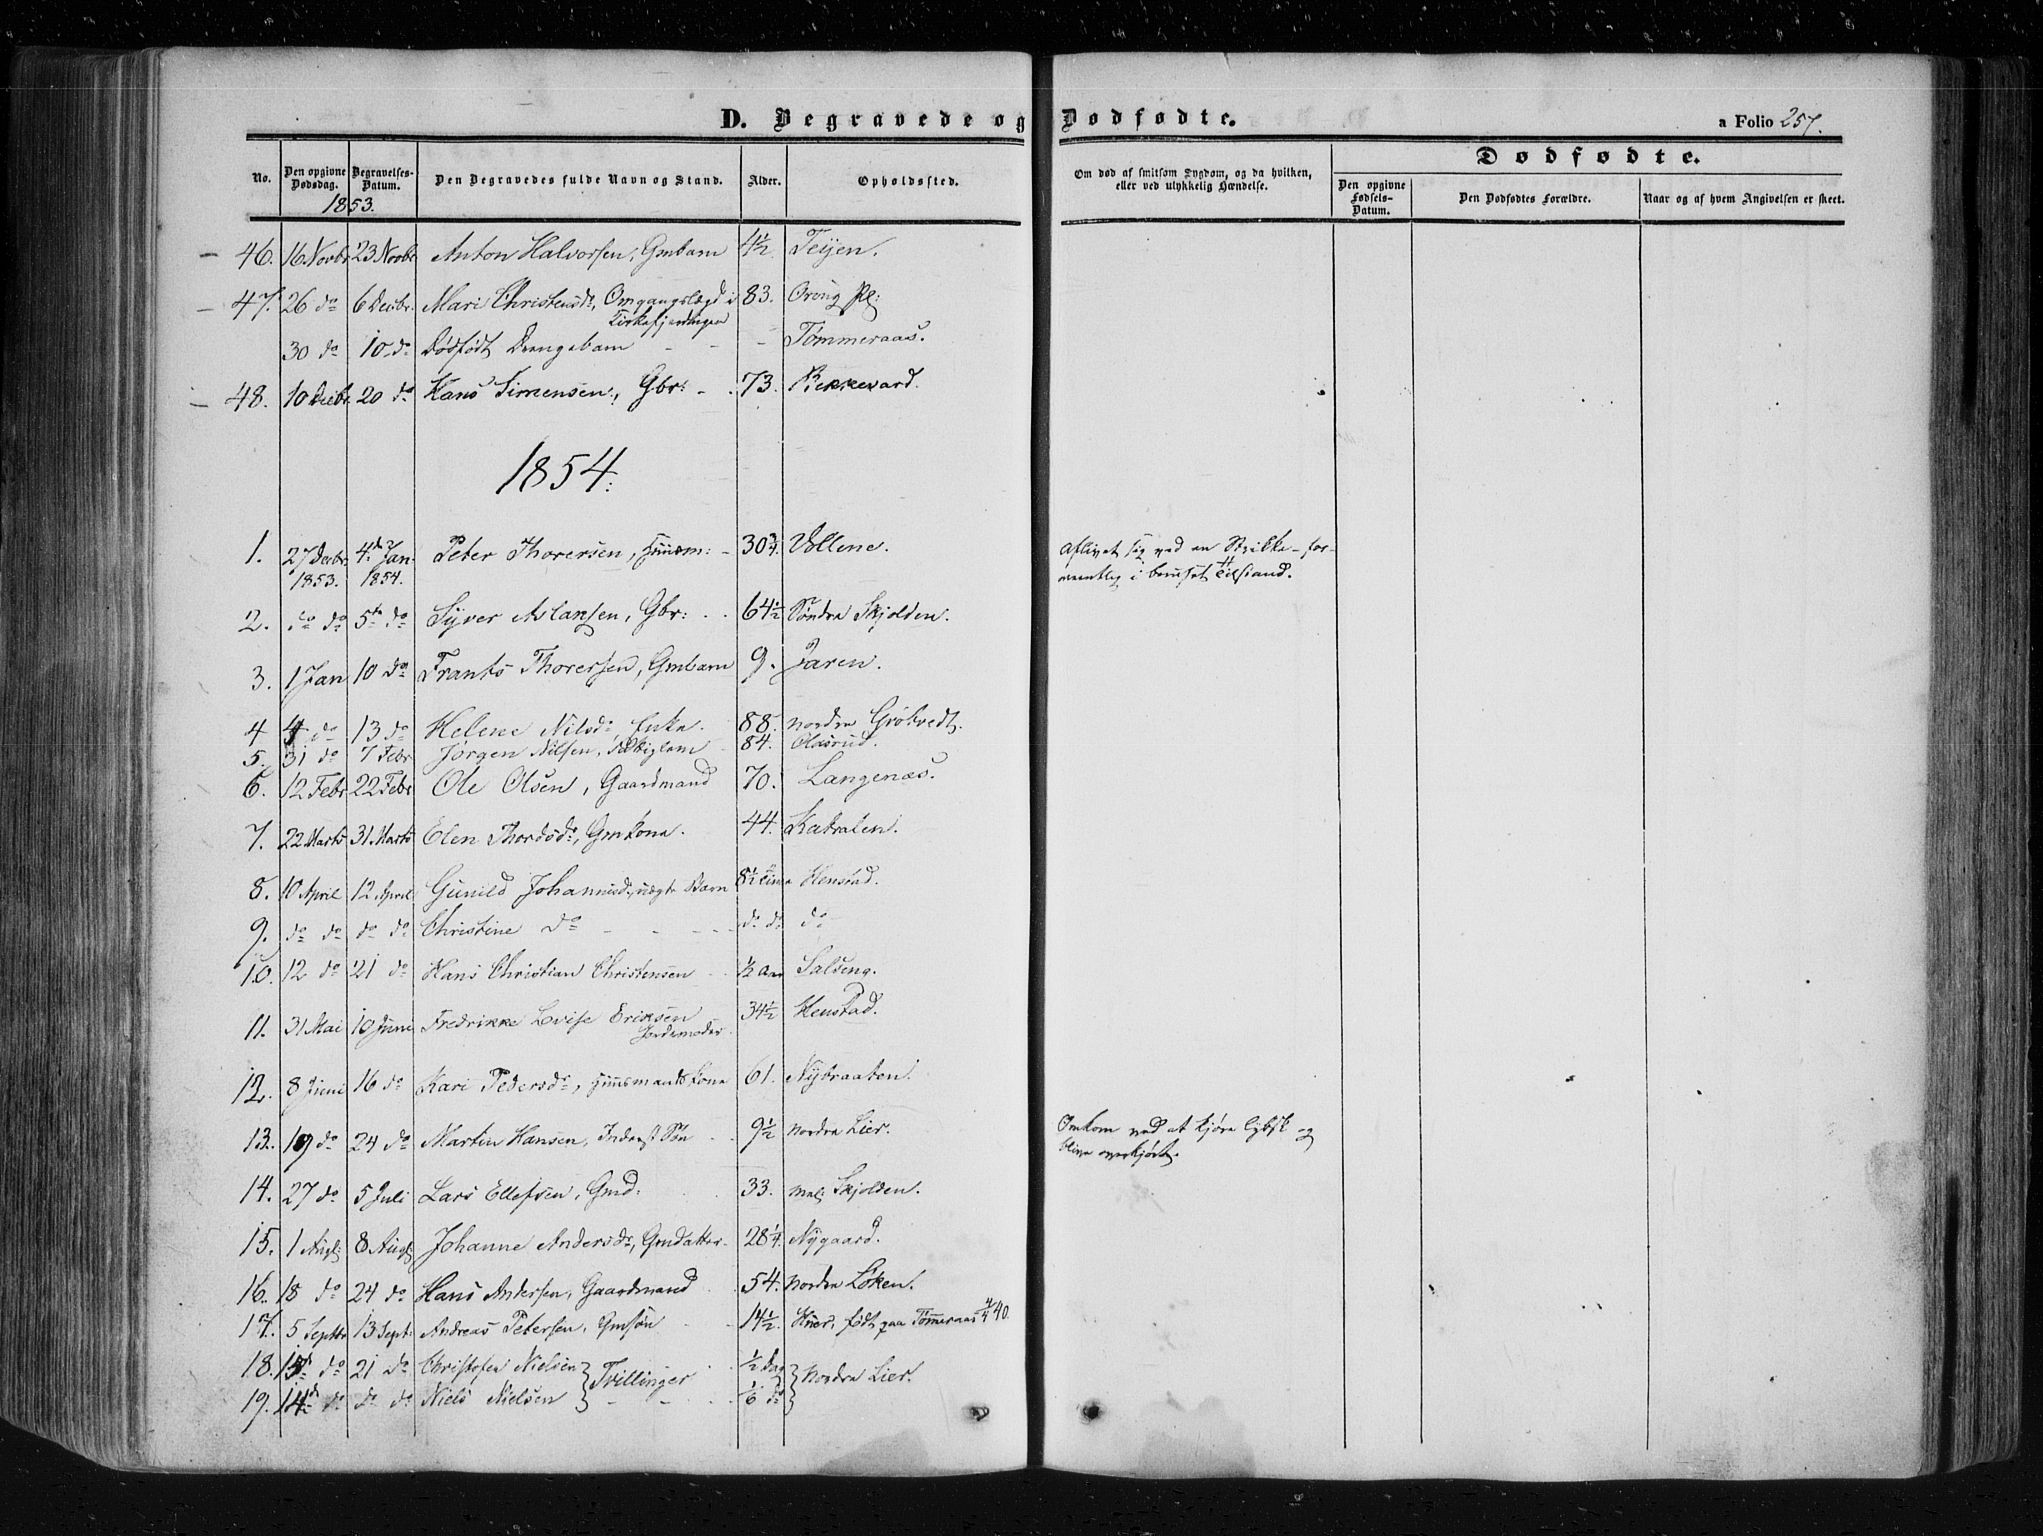 D. Begravede og Dødfødte.
a Folio 257.
No. Den opgivne Dødsdag. Begravelses-Datum. Den Begravedes fulde Navn og Stand. Alder. Opholdssted. Om død af smitsom Sygdom, og da hvilken, eller ved ulykkelig Hændelse. Dødfødte. Den opgivne Fødsels-Datum. Den Dødfødtes Forældre. Naar og af hvem Angivelsen er skeet.
1853.
46. 16 Novbr 23 Novbr Anton Halvorsen, Gmbarn 4½ Teijen.
47. 26 do 6 Decbr. Mari Christensdr, Omgangslægd i 83. Oreng Pl:
Kirkefjerdingen
30 do 10 do Dødfødt Drengebarn - - - Tømmeraas.
48. 10 Decbr. 20 do Hans Simensen, Gbr: - 73. Bekkevard.
1854.
1. 27 Decbr. 4de Jan. Peter Thorersen, Huusm: - 30¾. Vollene. Aflivet sig ved en Strikke - for-
1853. 1854. mentlig i beruset Tilstand.
2. do do 5te do Syver Aslansen, Gbr: 64½ Søndre Skjolden.
3. 1 Jan 10 do Frants Thorersen, Gmbarn 9. Jaren.
4 4 do 13 do Helene Nilsdr, Enke. 88. nordre Grøtvedt.
5. 31 do 7 Febr Jørgen Nilsen, 84. Olasrud.
6. 12 Febr 22 Febr Ole Olsen, Gaardmand 70. Langenæs.
7. 22 Marts 31. Marts Elen Thordsdr, Gmkone. 44. Katralen.
8. 10 April 12 April Gunild Johannesdr, uægte Barn 8½ Time Henstad.
9. do do do do Christine do - - - do do do
10. 12 do 21 do Hans Christian Christensen ½ Aar Salseng.
11. 31 Mai 10 Juni Fredrikke Lovise Eriksen 34½ Henstad.
Jordemoder.
12. 8 Juni 16 do Kari Pedersdr, Huusmandskone 61. Nybraaten.
13. 19 do 24 do Martin Hansen, Inderst Søn 9½ nordre Lier. Omkom ved at kjøre og
blive overkjørt.
14. 27 do 5 Juli Lars Ellefsen, Gmd: 33. Skjolden.
15. 1 Aug: 8 Aug: Johanne Andersdr, Gmdatter 28¼. Nygaard.
16. 18 do 24 do Hans Andersen, Gaardmand 54. nordre Løken.
17. 5 Septbr 13 Sept: Andreas Petersen, Gmsøn 14½. Huer, født paa Tømmeraas 4/4 40.
18. 15 do 21 do Christofer Nielsen } Tvillinger ½ Dag } nordre Lier.
19. 14d do do do Niels Nielsen 1/6 do